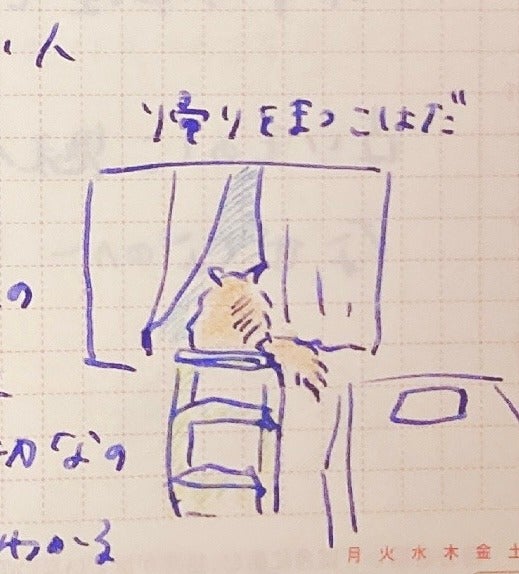 い人
帰りをまつこはだ
の
切なの
わかる
月 火 水 木 金 土